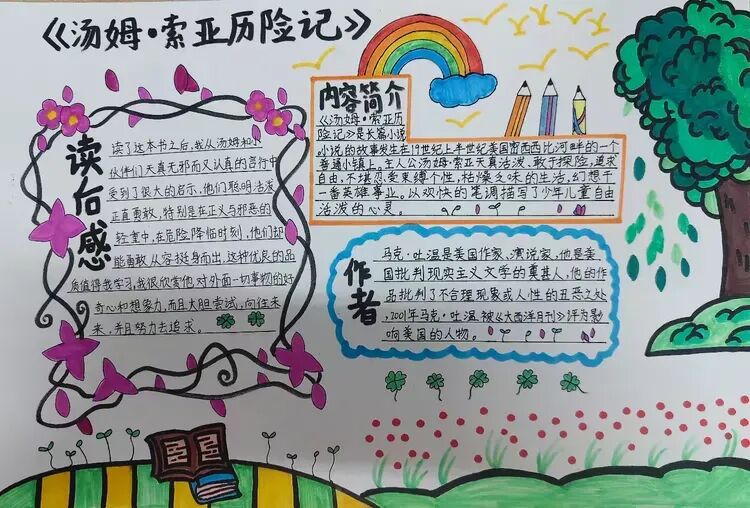 《汤姆·索亚历险记》
读后感
读了这本书之后，我从汤姆和小
伙伴们天真无邪而又认真的言行中
受到了很大的启示，他们聪明活泼
正直勇敢，特别是在正义与邪恶的
轻重中，在危险降临时刻，他们却
能勇敢从容挺身而出，这种优良的品
质值得我学习，我很欣赏他对外面一切事物的好
奇心和想象力，而且大胆尝试，向往未
来，并且努力去追求。
内容简介
《汤姆·索亚历
险记》是长篇小说
小说的故事发生在19世纪上半世纪美国密西西比河畔的一个
普通小镇上，主人公汤姆·索亚天真活泼，敢于探险，追求
自由，不堪忍受束缚个性，枯燥乏味的生活，幻想干
一番英雄事业。以欢快的笔调描写了少年儿童自由
活泼的心灵。
作者
马克·吐温是美国作家，演说家，他是美
国批判现实主义文学的奠基人，他的作
品批判了不合理现象或人性的丑恶之处
，2001年马克·吐温被《大西洋月刊》评为影
响美国的人物。